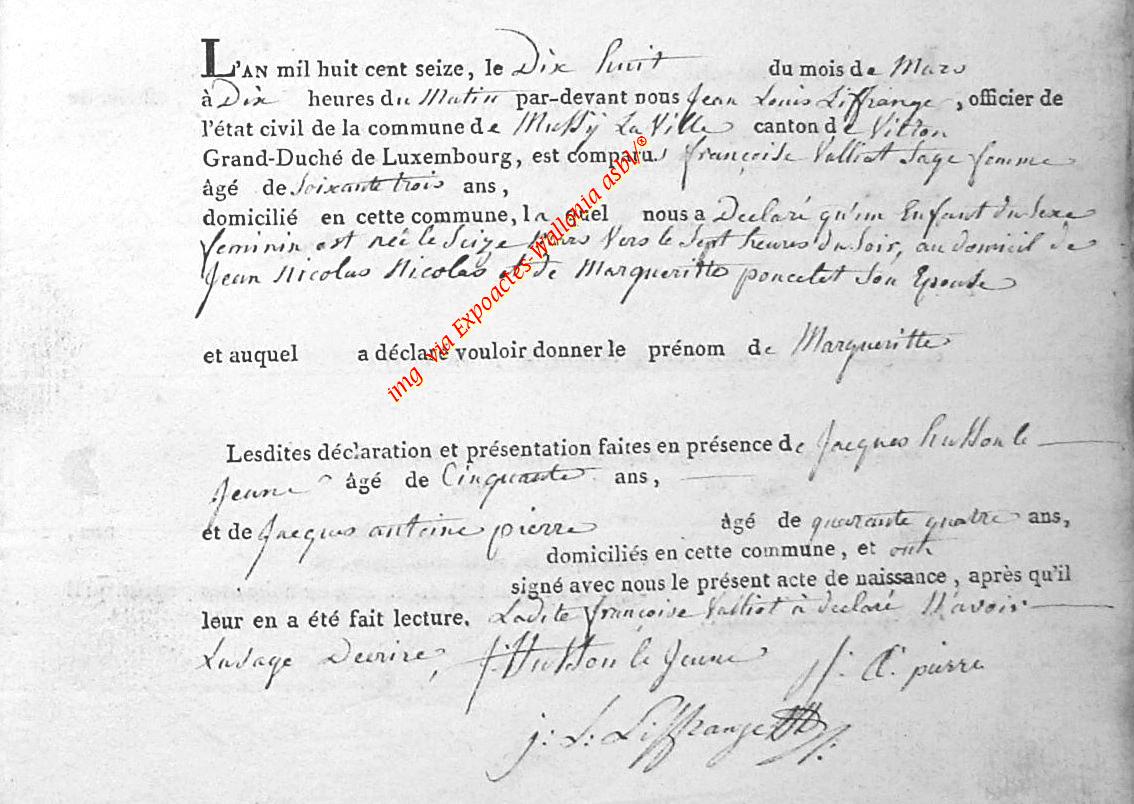 L'AN mil huit cent seize, le Dix huit du mois de Mars
à Dix heures du Matin par-devant nous Jean Louis Liffrange, officier de
l'état civil de la commune de Mussy La Ville canton de Virton
Grand-Duché de Luxembourg, est comparu françoise Valliot Sage femme
âgé de Soixante trois ans,
domicilié en cette commune, la quel nous a Declaré qu'un Enfant du Sexe
feminin est née le Seize Mars Vers le Sept heures du Soir, au domicil de
Jean Nicolas Nicolas et de Margueritte poncelet Son Epouse
et auquel a déclaré vouloir donner le prénom de Margueritte
Lesdites déclaration et présentation faites en présence de Jacques husson le
Jeune âgé de Cinquante ans,
et de Jacques antoine pierre âgé de quarante quatre ans,
domiciliés en cette commune, et ont
signé avec nous le présent acte de naissance, après qu'il
leur en a été fait lecture. Ladite françoise Valliot à declaré N'avoir
Lusage Decrire, J: Husson le Jeune J: A: pierre
j: L: Liffrange
img via Expoactes-Wallonia asbl/®